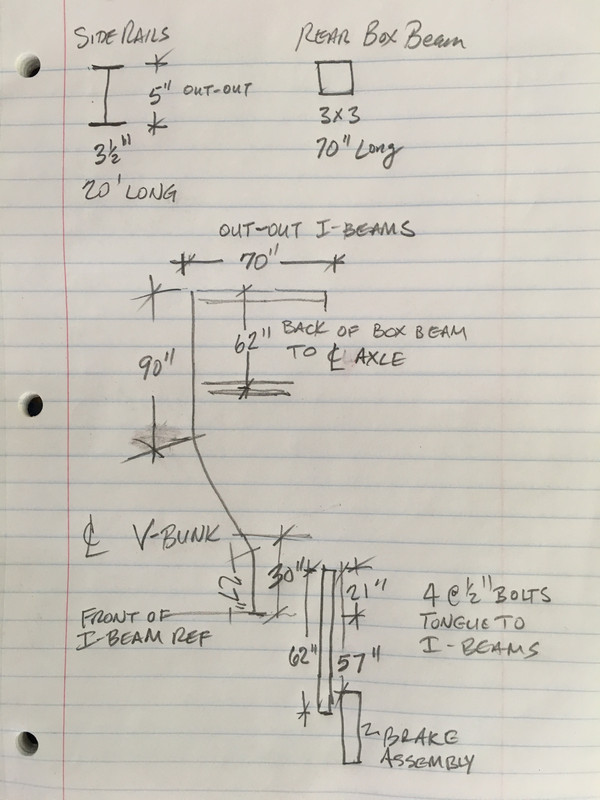 SIDE RAILS
5" OUT-OUT
3½"
20' LONG
REAR BOX BEAM
3x3
70" Long
OUT-OUT I-BEAMS
70"
90"
62" BACK OF BOX BEAM
TO ℄ AXLE
℄ V-BUNK
27"
30"
FRONT OF
I-BEAM REF
62"
57"
21"
4 @ ½" BOLTS
TONGUE TO
I-BEAMS
BRAKE
ASSEMBLY